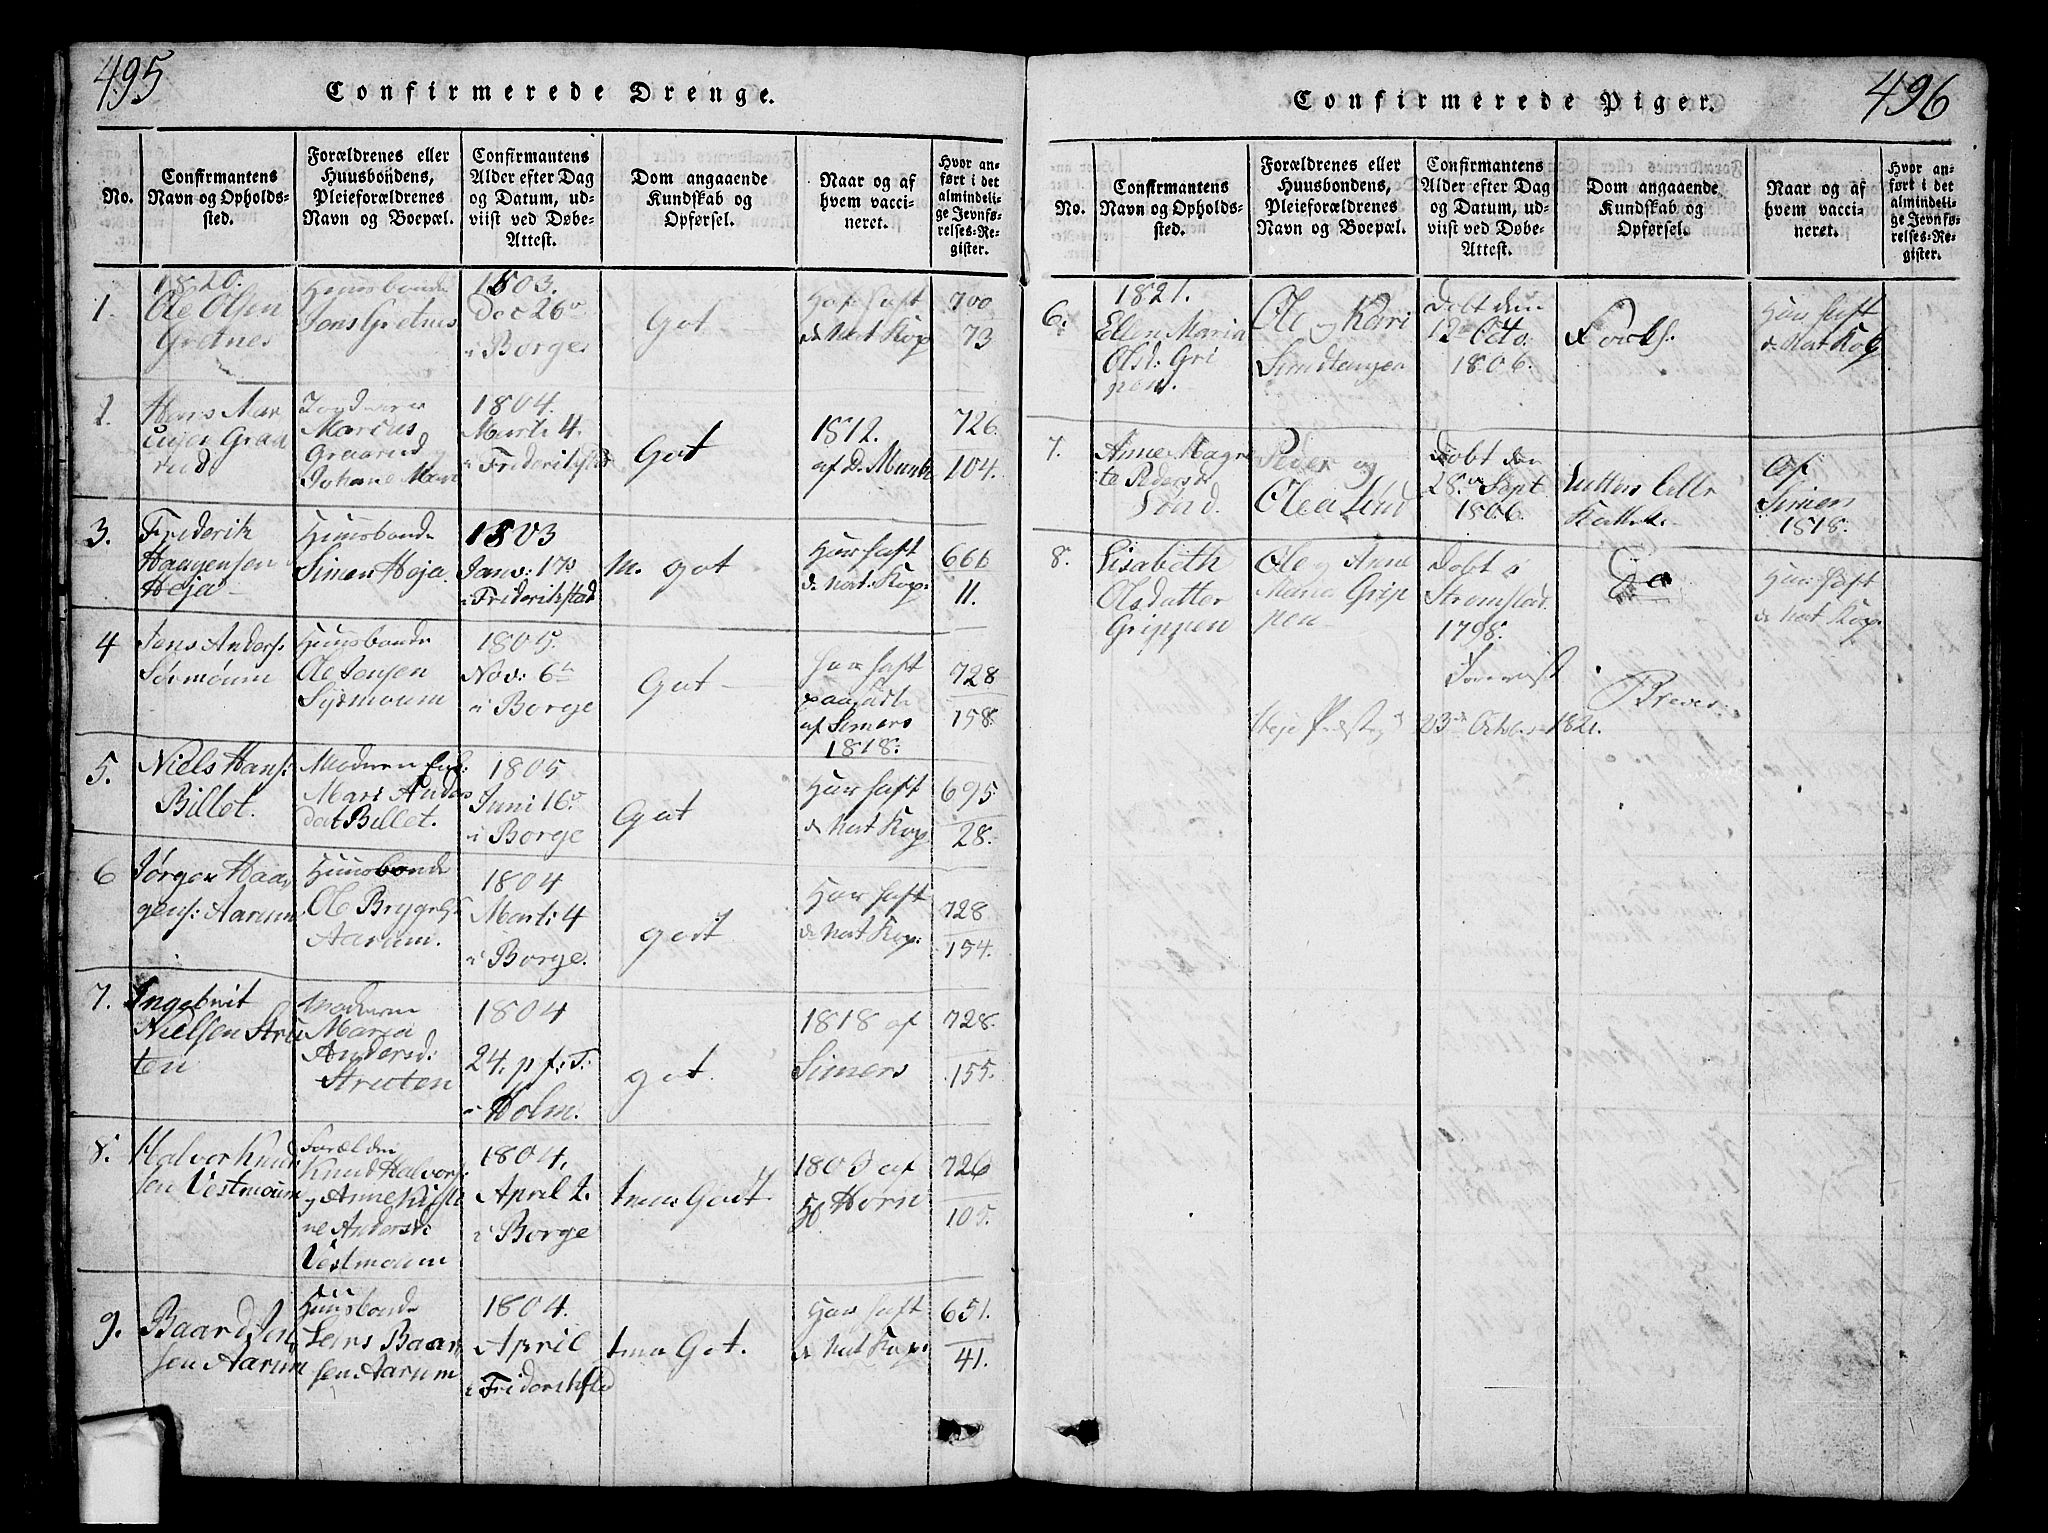 495
Confirmerede Drenge.
No.
Confirmantens
Navn og Opholds-
sted.
Forældrenes eller
Huusbondens,
Pleieforældrenes
Navn og Boepæl.
Confirmantens
Alder efter Dag
og Datum, ud-
viist ved Døbe-
Attest.
Dom angaaende
Kundskab og
Opførsel.
Naar og af
hvem vacci-
neret.
Hvor an-
ført i det
almindeli-
ge Jevnfø-
relses-Re-
gister.
1.
1820.
Ole Olsen
Gretnes
Huusbonde
Jons Gretnes
1803.
Dec 26
i Borge
Got
Har haft
de nat Kop
700
73
2.
Hans Mar
Graa
rud
Marcus
Graarud
Johane
1804.
Marti 4.
i Friderikstad
Got
1812.
af D. Munk
726.
104.
3.
Friderik
Haagensen
Heja
Huusbonde
Simen Heja
1803
Janv: 17
i Friderikstad
M. got
Har haft
de nat. Kop:
666
11.
4
Jens Anders:
Huusbonde
Ole Jensen
1805.
Nov: 6
i Borge
Got
Har haft
af Simers
1818:
728
158.
5.
Niels Hans:
Billet.
Moderen
Mari Anders
dat Billet.
1805
Juni 16
i Borge
Got
Har haft
de nat Kop
695
28.
6
Jørgen Haa
gens: Aarum
Huusbonde
Ole
Aarum.
1804
Marti 4
i Borge.
got
Har haft
de nat Kop:
728
154.
7.
Ingebrit
Nielsen Stru
ten
Moderen
Maria
Andersd:
Struten
1804
24. p f: T:
i Holm.
got.
1818 af
Simers
728.
155.
8.
Halvor Knud
sen Vestmoum
Forældre
Knud Halvors
og Anne Kirsti
ne Andersd:
Vestmoum
1804.
April 2.
i Borge
tma Godt.
1803 af
Horn
726
105.
9.
Baard Jen
sen Aarum
Huusbonde
Lars Baar
sen Aarum
1804.
April
i Fridrikstad
tma Got.
Har haft
de nat Kop:
651.
41.
496
Confirmerede Piger.
No.
Confirmantens
Navn og Opholds-
sted.
Forældrenes eller
Huusbondens,
Pleieforældrenes
Navn og Boepæl.
Confirmantens
Alder efter Dag
og Datum, ud-
viist ved Døbe-
Attest.
Dom angaaende
Kundskab og
Opførsel.
Naar og af
hvem vacci-
neret.
Hvor an-
ført i det
almindeli-
ge Jevnfø-
relses-Re-
gister.
6.
1821.
Ellen Maria
Olsd: Gri
pen.
Ole og Kari
Døbt den
12 Octo.
1806.
Har haft
de nat Kop
7.
Anne Magre
te Pedersd
Peder og
Olea
Døbt den
28. Sept
1806.
Af
Simen
1818.
8.
Lisabeth
Olsdatter
Grippen
Ole og Anne
Maria Grip
pen
Døbt i
Strømstad.
1798.
Har haft
de nat Kop:
23 October 1821.